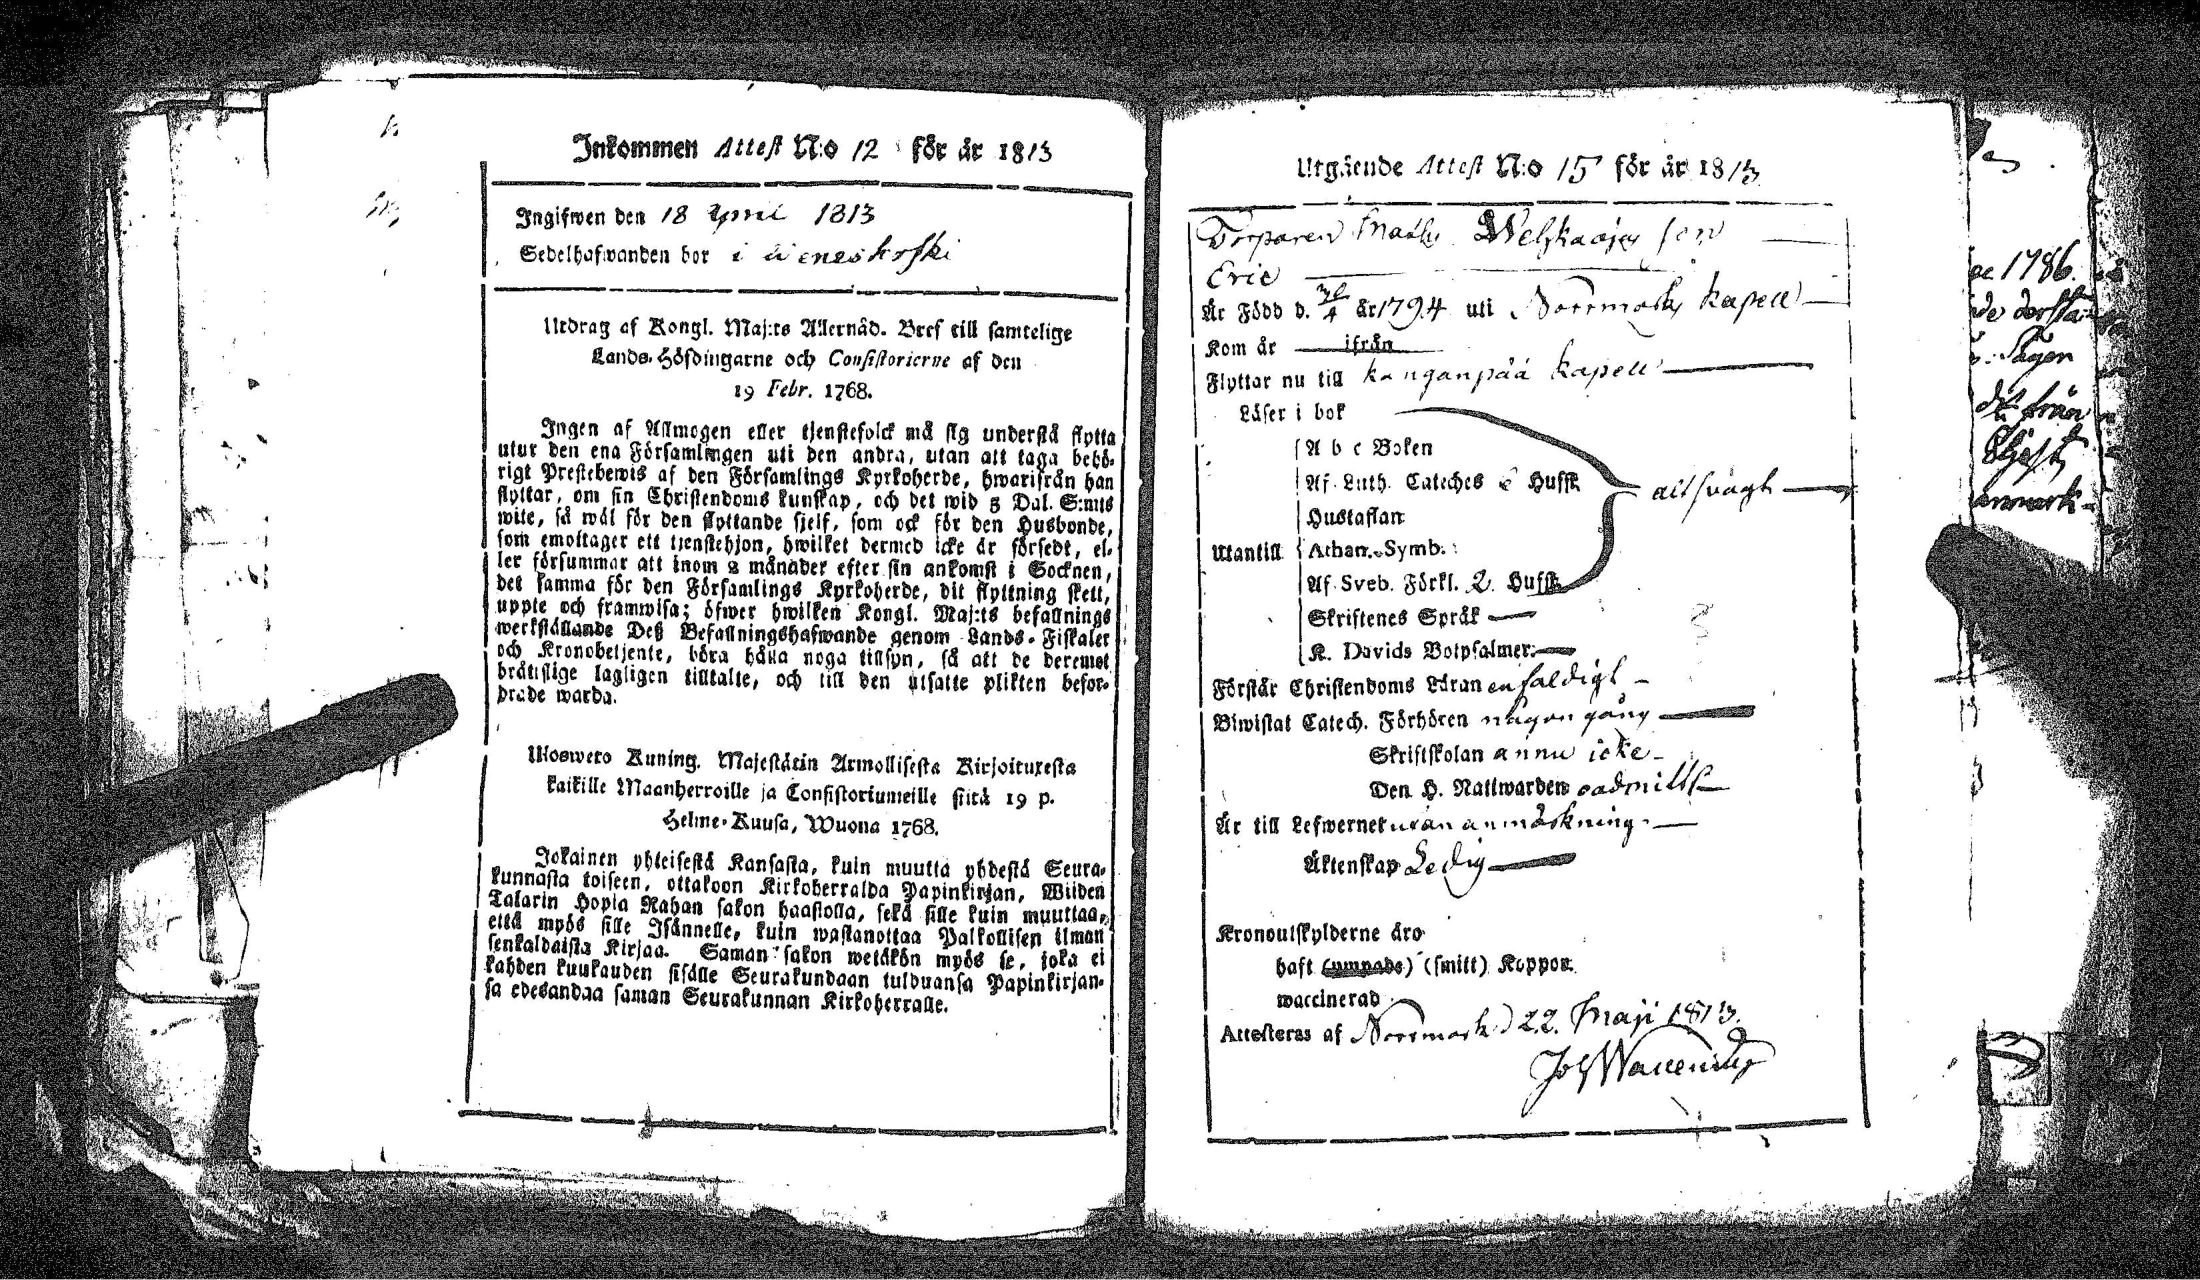 Inkommen Attest N:o 12 för år 1813
Ingifwen den 18 1813
Sedelhafwanden bor i
Utdrag af Kongl. Maj:ts Allernåd. Bref till samtelige
Lands-Höfdingarne och Consistorierne af den
19 Febr. 1768.
Ingen af Allmogen eller tjenstefolck må sig understå flytta
utur den ena Församlingen uti den andra, utan att taga behö-
rigt Prestebewis af den Församlings Kyrkoherde, hwarifrån han
flyttar, om sin Christendoms kunskap, och det wid 5 Dal. S:mts
wite, så wäl för den flyttande sjelf, som ock för den Husbonde,
som emottager ett tienstehjon, hwilket dermed icke är försedt, el-
ler försummar att inom 2 månader efter sin ankomst i Socknen,
det samma för den Församlings Kyrkoherde, dit flyttning skett,
uppte och framwisa; öfwer hwilken Kongl. Maj:ts befallnings
werkställande Deß Befallningshafwande genom Lands-Fiskaler
och Kronobetjente, böra hålla noga tillsyn, så att de deremot
brättslige lagligen tilltalte, och till den utsatte plikten befor-
drade warda.
Uloswero Kuning. Majestätin Armollisesta Kirjoituxesta
kaikille Maanherroille ja Consistoriumeille siitä 19 p.
Helme-Kuusa, Wuona 1768.
Jokainen yhteisestä Kansasta, kuin muutta yhdestä Seura-
kunnasta toiseen, ottakoon Kirkoherralda Papinkirjan, Wiiden
Talarin Hopia Rahan sakon haastolla, sekä sille kuin muuttaa,
että myös sille Isännelle, kuin wastanottaa Palkollisen ilman
senkaldaista Kirjaa. Saman sakon wetäkön myös se, joka ei
kahden kuukauden sisälle Seurakundaan tulduansa Papinkirjan-
sa edesandaa saman Seurakunnan Kirkoherralle.
Utgående Attest N:o 15 för år 1813
Torparen Maths son
Eric
Är Född d. 30/4 år 1794 uti Norrmarks kapell
Kom år ifrån
Flyttar nu till kanganpää kapell
Läser i bok
A b c Boken
Af Luth. Cateches 6 Hufst.
Hustaflan
allt svagt
Utantill Athan. Symb.
Af Sveb. Förkl. 2 Hufst.
Skriftenes Språk
K. Davids Botpsalmer.
Förstår Christendoms Läran enfaldigt
Biwistat Catech. Förhören någon gång
Skriftskolan ännu icke
Den H. Nattwarden oadmitt.
Är till Lefwernet utan anmärkning.
Äktenskap Ledig
Kronoutskylderne äro
haft (ympade) (smitt) Koppor.
waccinerad
Attesteras af Norrmark d 22. Maji 1813.
ac 1786.
från